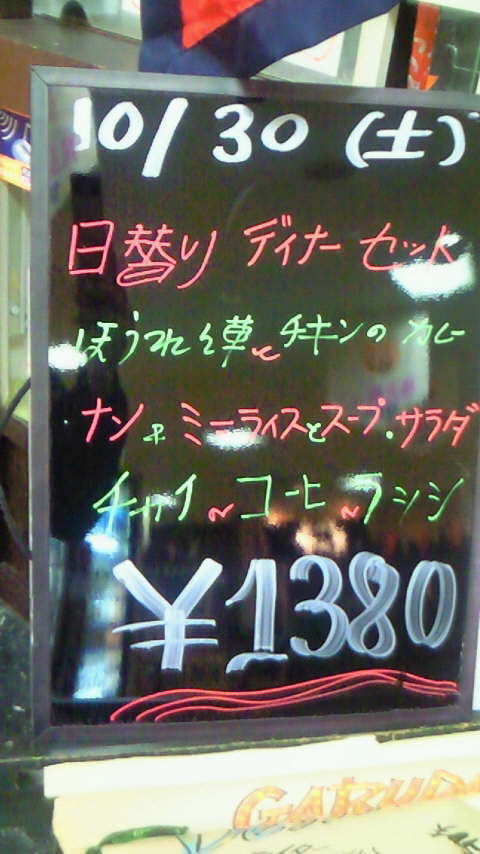 10/30 (土)
日替り ディナー セット
ほうれん草とチキンの カレー
ナン & ミニライスとスープ・サラダ
チャイ ~ コーヒ ~ ラッシシ
¥1380
GARUDA